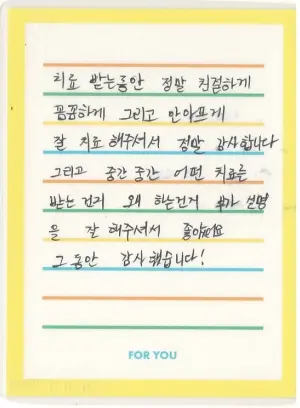 치료 받는동안 정말 친절하게
꼼꼼하게 그리고 안아프게
잘 치료 해주셔서 정말 감사합니다
그리고 중간 중간 어떤 치료를
받는건지 왜 하는건지 설명
을 잘 해주셔서 좋았어요
그동안 감사했습니다!
FOR YOU